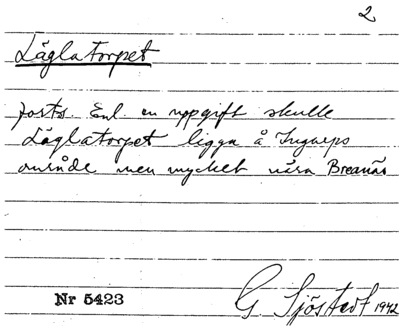 2
Läglatorpet
forts. Enl. en uppgift skulle
Läglatorpet ligga å Ingarps
område men mycket nära Breanäs
Nr 5423
G. Sjöstedt 1942